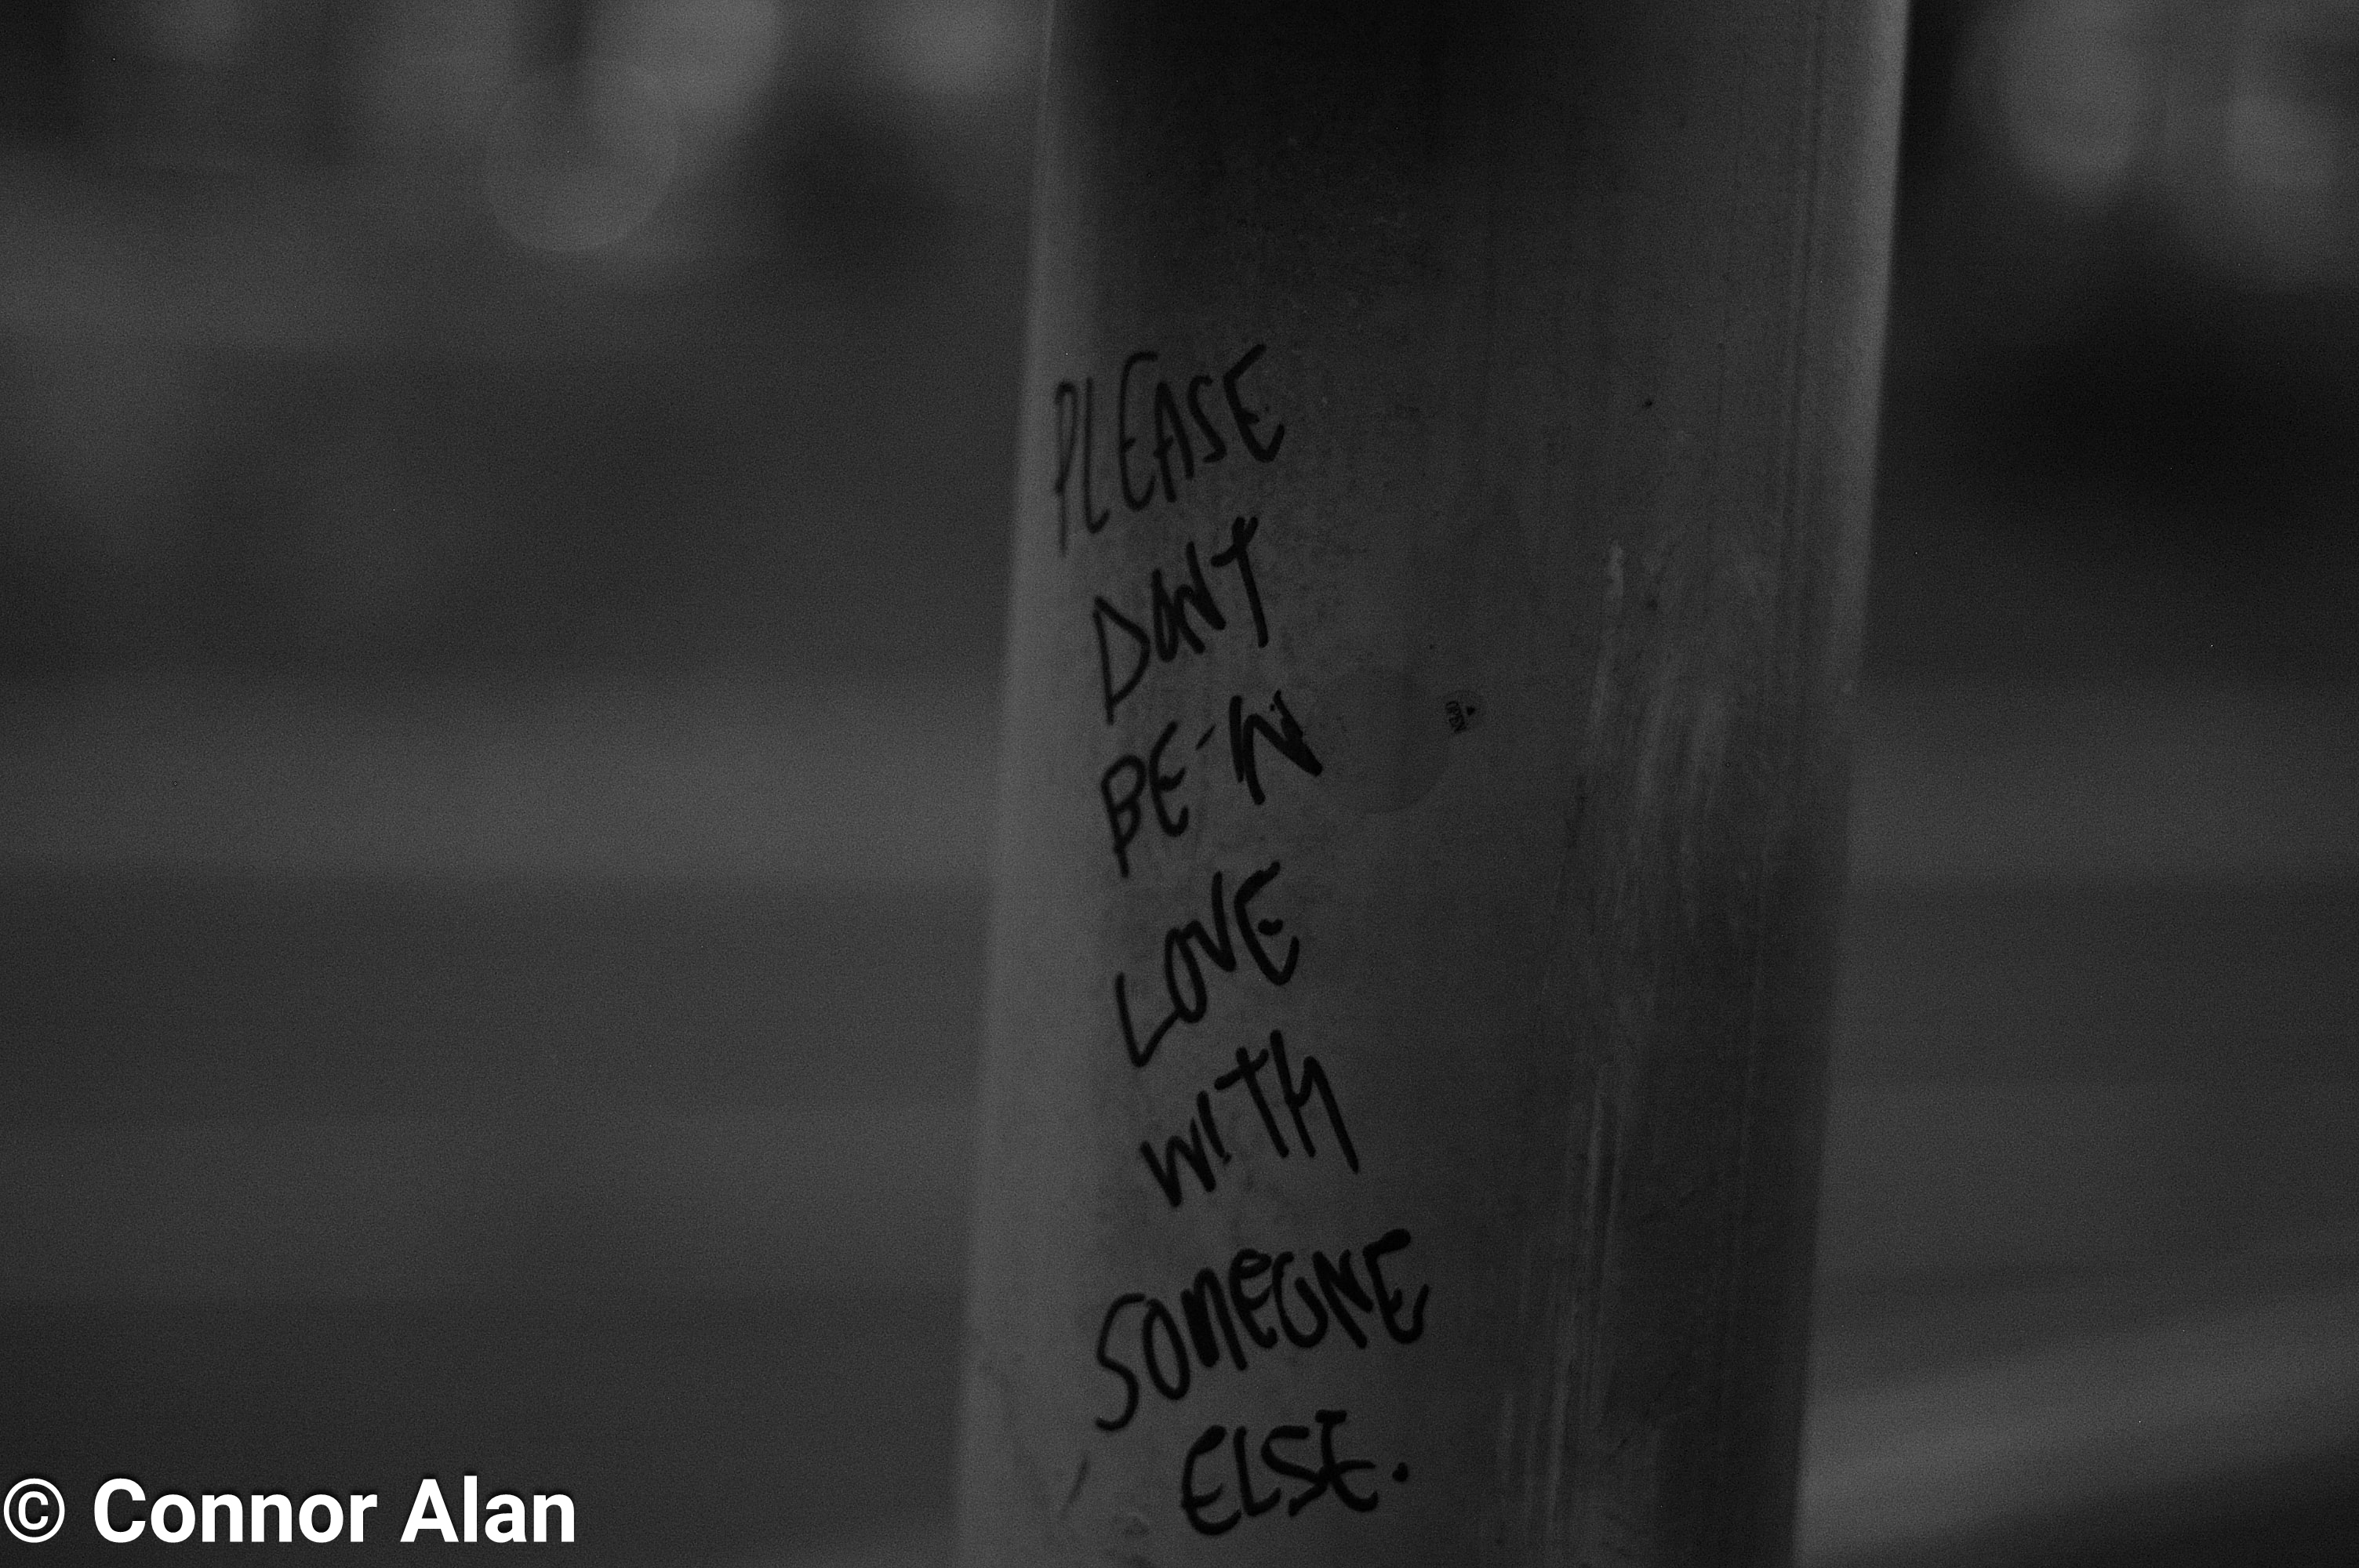 PLEASE
DONT
BE IN
LOVE
WITH
SOMEONE
ELSE.
OPEN
© Connor Alan